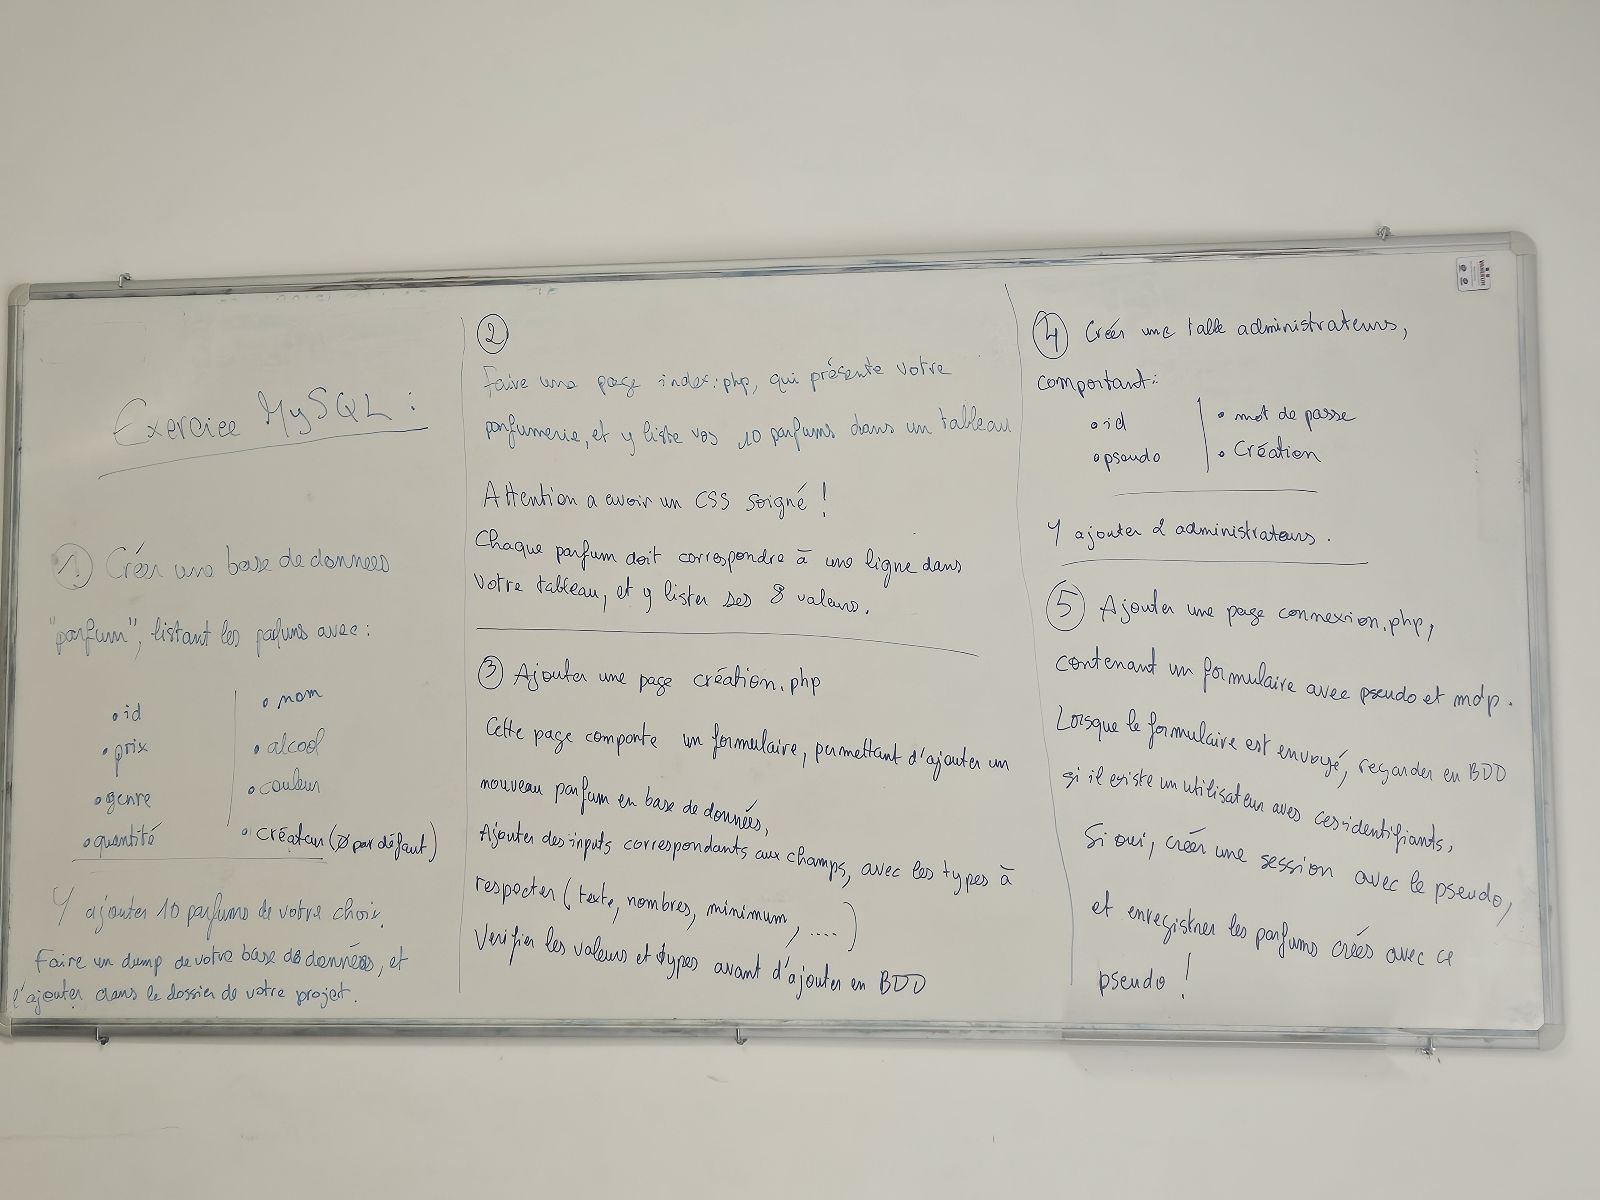 Exercice MySQL :
① Créer une base de données
"parfum", listant les pafums avec :
• id
• prix
• genre
• quantité
• nom
• alcool
• couleur
• créateur (∅ par défaut)
Y ajouter 10 parfums de votre choix.
Faire un dump de votre base de données, et
l'ajouter dans le dossier de votre projet.
②
Faire une page index.php, qui présente votre
parfumerie, et y liste vos 10 parfums dans un tableau
Attention a avoir un CSS soigné !
Chaque parfum doit correspondre à une ligne dans
votre tableau, et y lister ses 8 valeurs.
③ Ajouter une page création.php
Cette page comporte un formulaire, permettant d'ajouter un
nouveau parfum en base de données,
Ajouter des inputs correspondants aux champs, avec les types à
respecter (texte, nombres, minimum, ....)
Verifier les valeurs et types avant d'ajouter en BDD
④ Créer une table administrateurs,
comportant :
• id
• pseudo
• mot de passe
• Création
Y ajouter 2 administrateurs.
⑤ Ajouter une page connexion.php,
contenant un formulaire avec pseudo et mdp.
Lorsque le formulaire est envoyé, regarder en BDD
si il existe un utilisateur avec ces identifiants,
Si oui, créer une session avec le pseudo,
et enregistrer les parfums créés avec ce
pseudo !